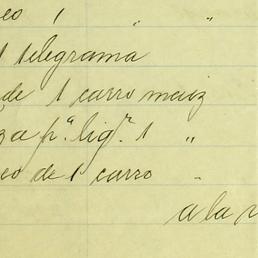 eo 1 " "
1 telegrama
de 1 carro maiz
za pª. ligª. 1 "
eo de 1 carro "
a la v